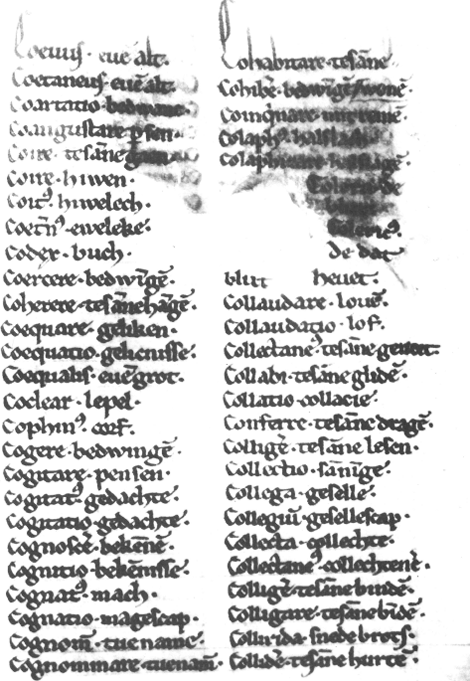 Coeuus · euē alt.
Coetaneus · euē alt.
Coartatio · bedwanc.
Coangustare
Coire · tesāne
Coire · hiwen ·
Coit⁹ · hiwelech ·
Coetn̄⁹ · eweleke ·
Codex · buch ·
Coercere · bedwīgē ·
Coherere · tesāne hāgē ·
Coequare · geliken ·
Coequatio · gelicnisse ·
Coequalis · euē grot ·
Coclear · lepel ·
Cophin⁹ · corf ·
Cogere · bedwingē ·
Cogitare · pensen ·
Cogitat⁹ · gedachte ·
Cogitatio · gedachte ·
Cognoscē · bekēnē ·
Cognitio · bekēnisse ·
Cognat⁹ · mach ·
Cognatio · magescap ·
Cognom̄ · tuename ·
Cognominare · tuenam̄ ·
Cohabitare · tesāne
Cohibē · bedwīgē
Coinq̄nare
Colaph⁹ · halslach ·
Colaphizare
Coleric⁹ ·
de dat
blut heuet ·
Collaudare · louē ·
Collaudatio · lof ·
Collectane⁹ · tesāne
Collabi · tesāne glidē ·
Collatio · collacie ·
Conferre · tesāne dragē ·
Colligē · tesāne lesen ·
Collectio · sānīge ·
Collega · geselle ·
Collegiū · gesellescap ·
Collecta · collechte ·
Collectane⁹ · collechtenē ·
Colligē · tesāne bindē ·
Colligare · tesāne bīdē ·
Collirida · snede brots ·
Collidē · tesāne hurtē ·